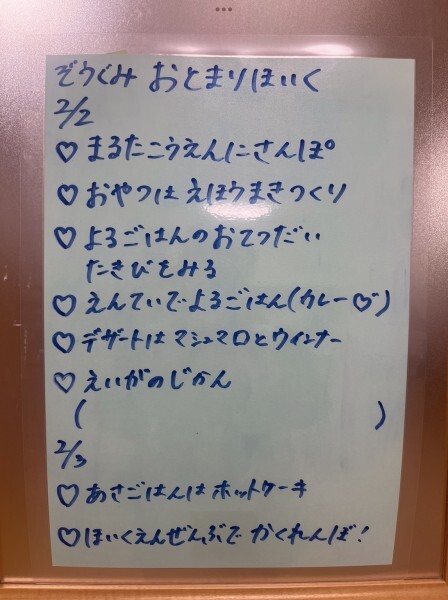 ぞうぐみ おとまりほいく
2/2
♡ まるたこうえんにさんぽ
♡ おやつは えほうまきつくり
♡ よるごはんのおてつだい
たきびをみる
♡ えんていでよるごはん(カレー♡)
♡ デザートはマシュマロとウインナー
♡ えいがのじかん
( )
2/3
♡ あさごはんはホットケーキ
♡ ほいくえんぜんぶで かくれんぼ!